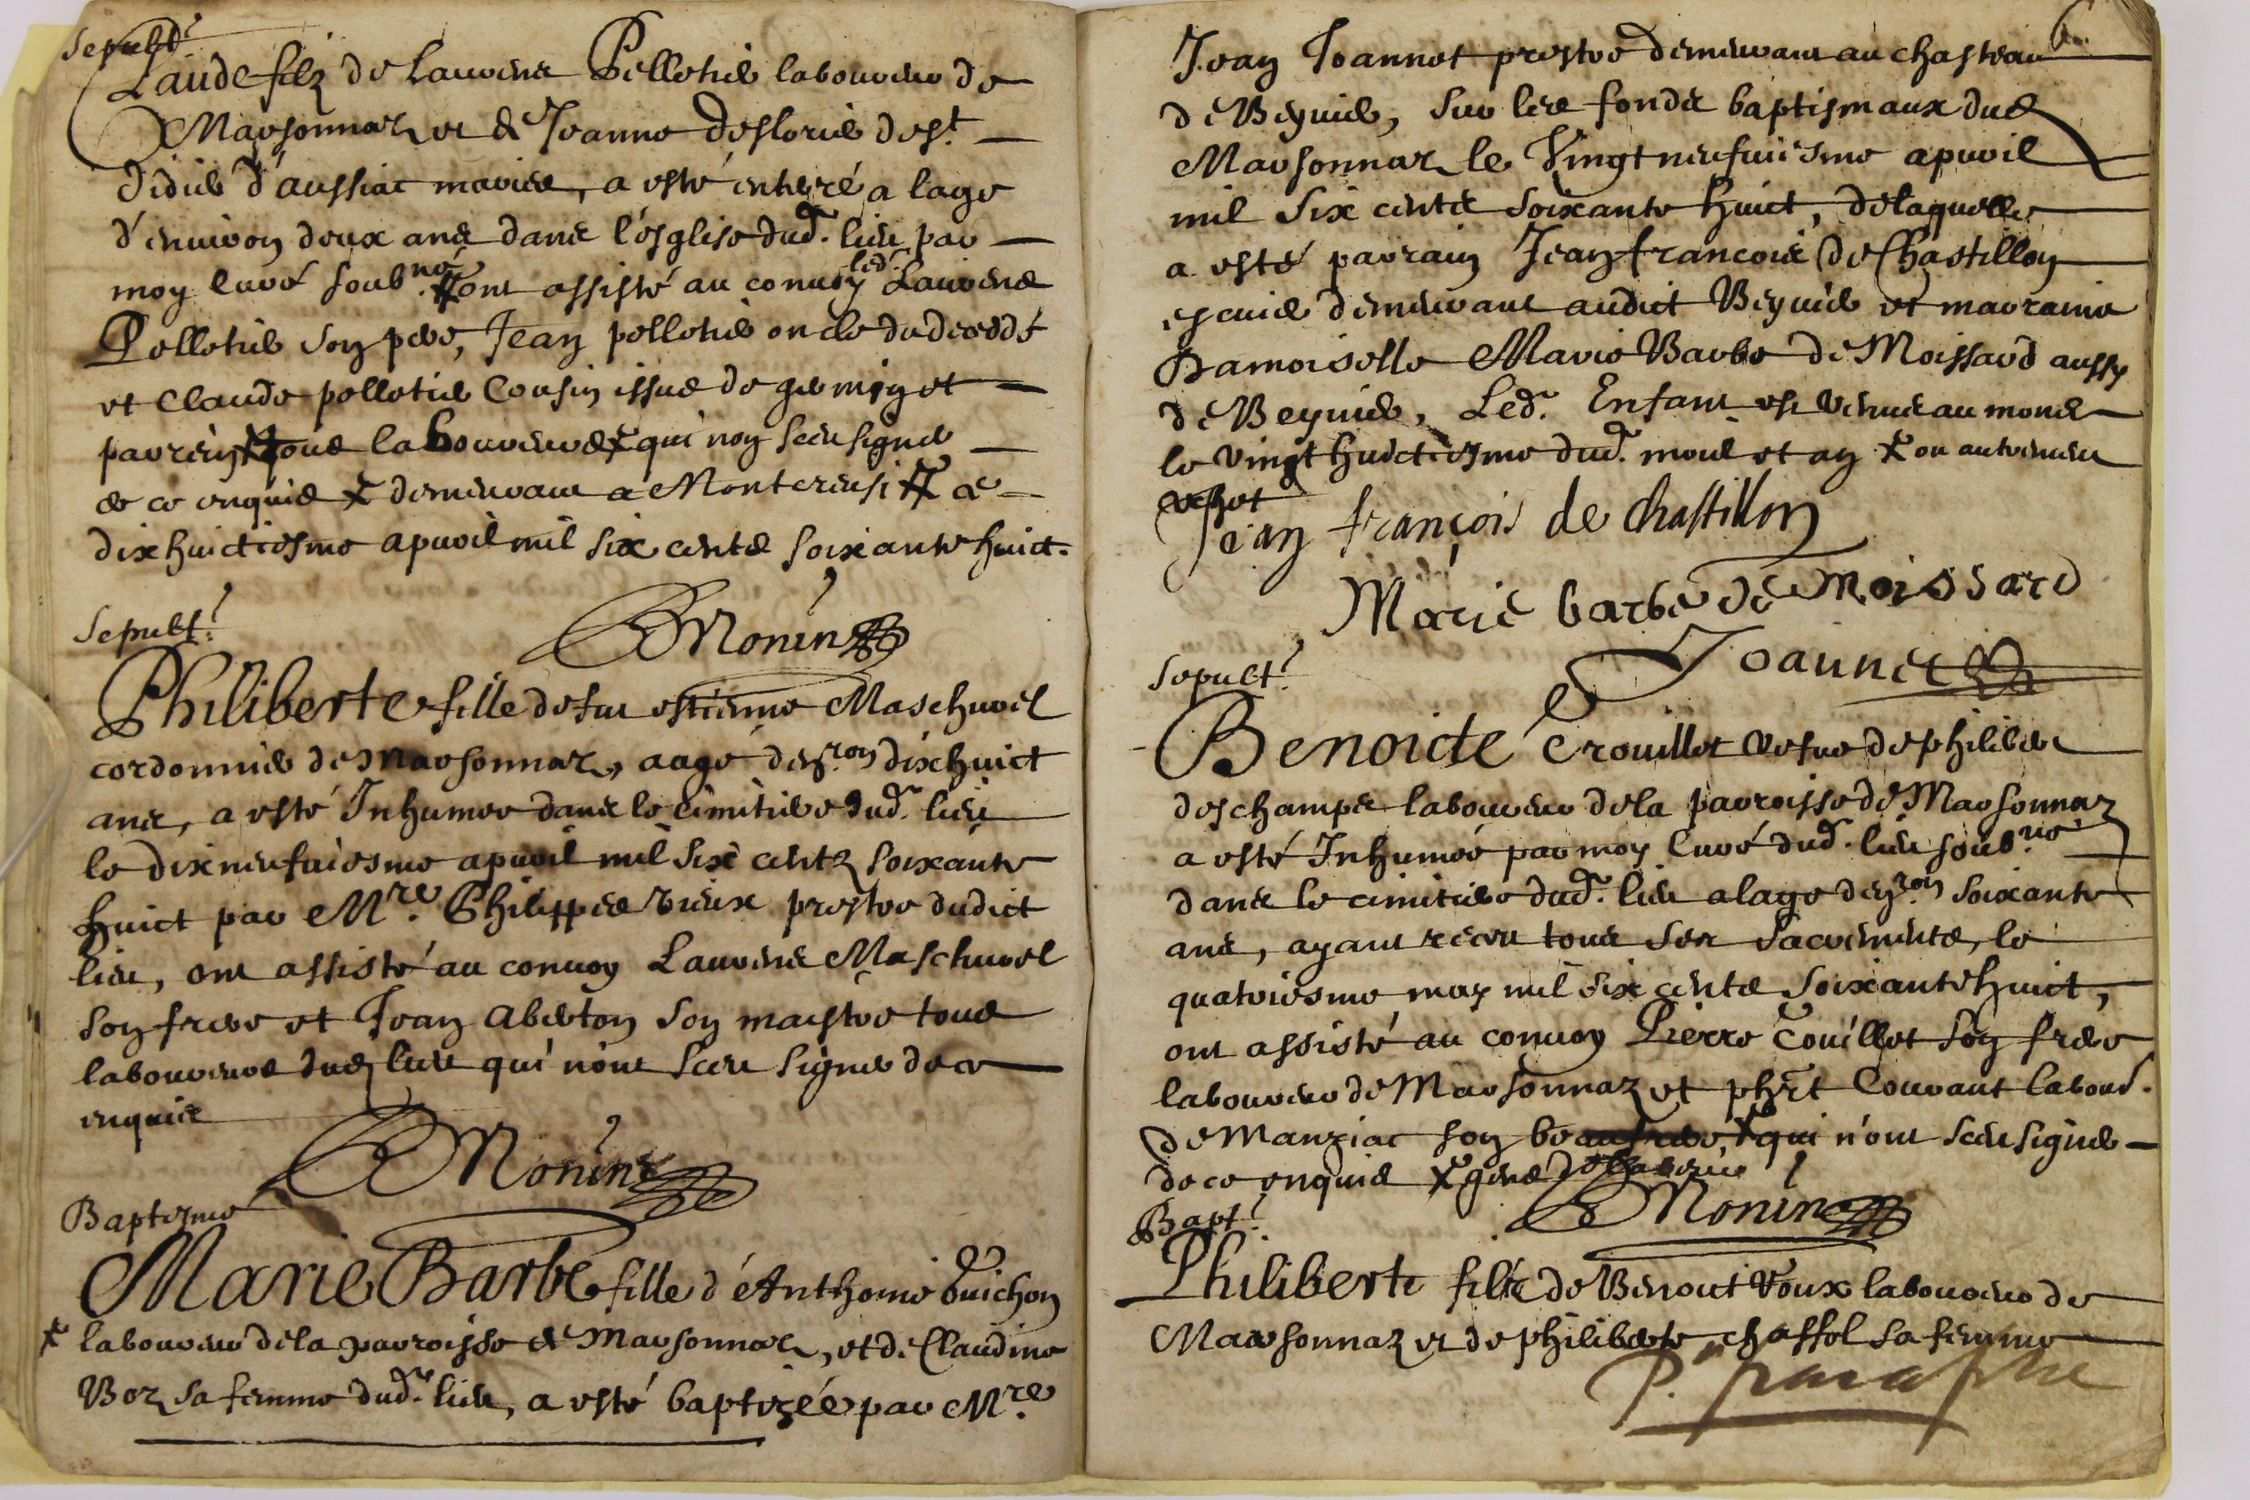 Sepult.
Claude filz de Laurens Pelletier laboureur de
Marsonnaz et de Jeanne Deslorier de St.
Didier d'aussiac mariés, a esté enterré a lage
d'environ deux ans dans l'esglise dud. lieu par
moy curé soub.né ont assisté au convoy led. Laurens
Pelletier son pere, Jean pelletier oncle du decedé
et Claude pelletier Cousin issus de germain et
parrein tous laboureurs qui n'on sceu signer
de ce enquis demeurant a Montcrensi le
dixhuictiesme apvril mil six cents soixante huict.
Monin
Sepult.
Philiberte fille de feu estienne Maschurel
cordonnier de Marsonnaz, aagé denron dixhuict
ans, a esté Inhumee dans le cimitiere dud. lieu
le dixneufviesme apvril mil six centz soixante
huict par Mre. Philippes vieux prestre dudict
lieu, ont assisté au convoy Laurens Maschurel
son frere et Jean Aberton son maistre tous
laboureurs dud lieu qui n'ont sceu signer de ce
enquis
Monin
Baptesme
Marie Barbe fille d'Anthoine Guichon
laboureur de la parroisse de Marsonnaz, et de Claudine
Boz sa femme dud. lieu, a esté baptisée par Mre.
6
Jean Joannet prestre demeurant au chasteau
de Beyvier, sur les fonds baptismaux dud
Marsonnaz le Vingtneufviesme apvril
mil six cents soixante huict, de laquelle
a esté parrain Jean francois de Chastillon
escuier demeurant audict Beyvier et marraine
Damoiselle Marie Barbe de Moissard aussy
de Beyvier, Led. Enfant est venue au monde
le vingthuictiesme dud. mois et an
Jean françois de chastillon
Marie barbe de Moissard
Joannet
Sepult.
Benoicte Crouillet vefve de philibert
deschamps laboureur de la parroisse de Marsonnaz
a esté Inhumée par moy curé dud. lieu soub.né
dans le cimitiere dud. lieu a lage denron soixante
ans, ayant receu tous ses sacrements, le
quatriesme may mil six cents soixante huict,
ont assisté au convoy Pierre Couillet son frere
laboureur de Marsonnaz et phrt Couvant labour.
de Manziat son beaufrere qui n'ont sceu signer
de ce enquis
Monin
Bapt.
Philiberte fille de Benoit Voux laboureur de
Marsonnaz et de philiberte chaffol sa femme
P. paraphe